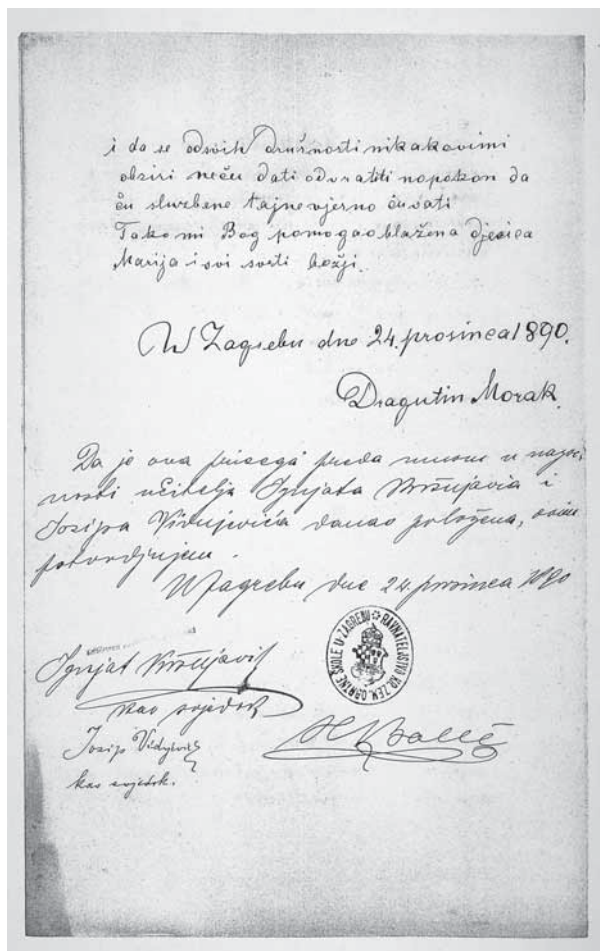 i da se odsvih družnosti nikakovimi
obziri neću dati odvratiti napokon da
ću službene tajne vjerno čuvati
Tako mi Bog pomogao blažena djevica
Marija i svi sveti božji.
U Zagrebu dne 24. prosinca 1890.
Dragutin Morak.
Da je ova prisega preda mnom u nazoč-
nosti učitelja Ignjata Kršnjavia i
Josipa Vidnjevića danas položena, ovim
potvrdjujem.
U Zagrebu dne 24. prosinca 1890
RAVNATELJSTVO KR. ZEM. OBRTNE ŠKOLE U ZAGREBU
Ignjat
kao svjedok
Josip
kao svjedok.
H Bollé